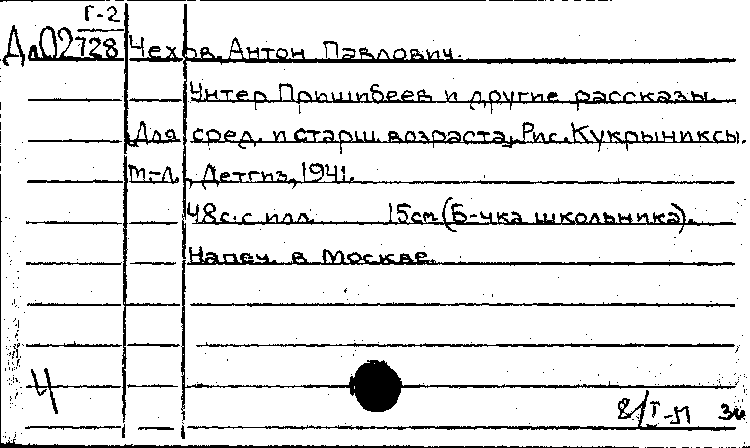 Г-2
Дл02728 Чехов, Антон Павлович.
Унтер Пришибеев и другие рассказы.
Для сред. и старш. возраста. Рис. Кукрыниксы.
М.-Л., Детгиз, 1941.
48с. с илл. 15см (Б-чка школьника).
Напеч. в Москве.
Ч